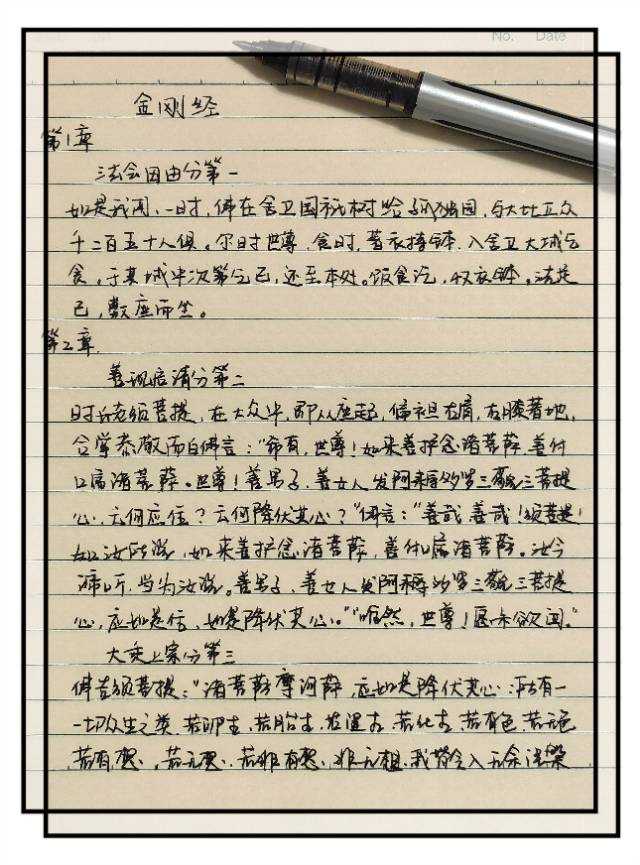 No. Date
金刚经
第1章
法会因由分第一
如是我闻、一时,佛在舍卫国祇树给孤独园,与大比丘众
千二百五十人俱。尔时世尊,食时,著衣持钵、入舍卫大城乞
食,于其城中次第乞已,还至本处。饭食讫,收衣钵。洗足
已,敷座而坐。
第2章
善现启请分第二
时长老须菩提,在大众中,即从座起,偏袒右肩,右膝著地,
合掌恭敬而白佛言:“希有,世尊!如来善护念诸菩萨,善付
嘱诸菩萨。世尊!善男子,善女人发阿耨多罗三藐三菩提
心,云何应住?云何降伏其心?”佛言:“善哉,善哉!须菩提!
如汝所说,如来善护念诸菩萨,善付嘱诸菩萨。汝今
谛听,当为汝说。善男子,善女人发阿耨多罗三藐三菩提
心,应如是住,如是降伏其心。”“唯然,世尊!愿乐欲闻。”
大乘正宗分第三
佛告须菩提:“诸菩萨摩诃萨,应如是降伏其心:所有一
一切众生之类,若卵生,若胎生,若湿生,若化生,若有色,若无色
若有想,若无想,若非有想,非无想,我皆令入无余涅槃